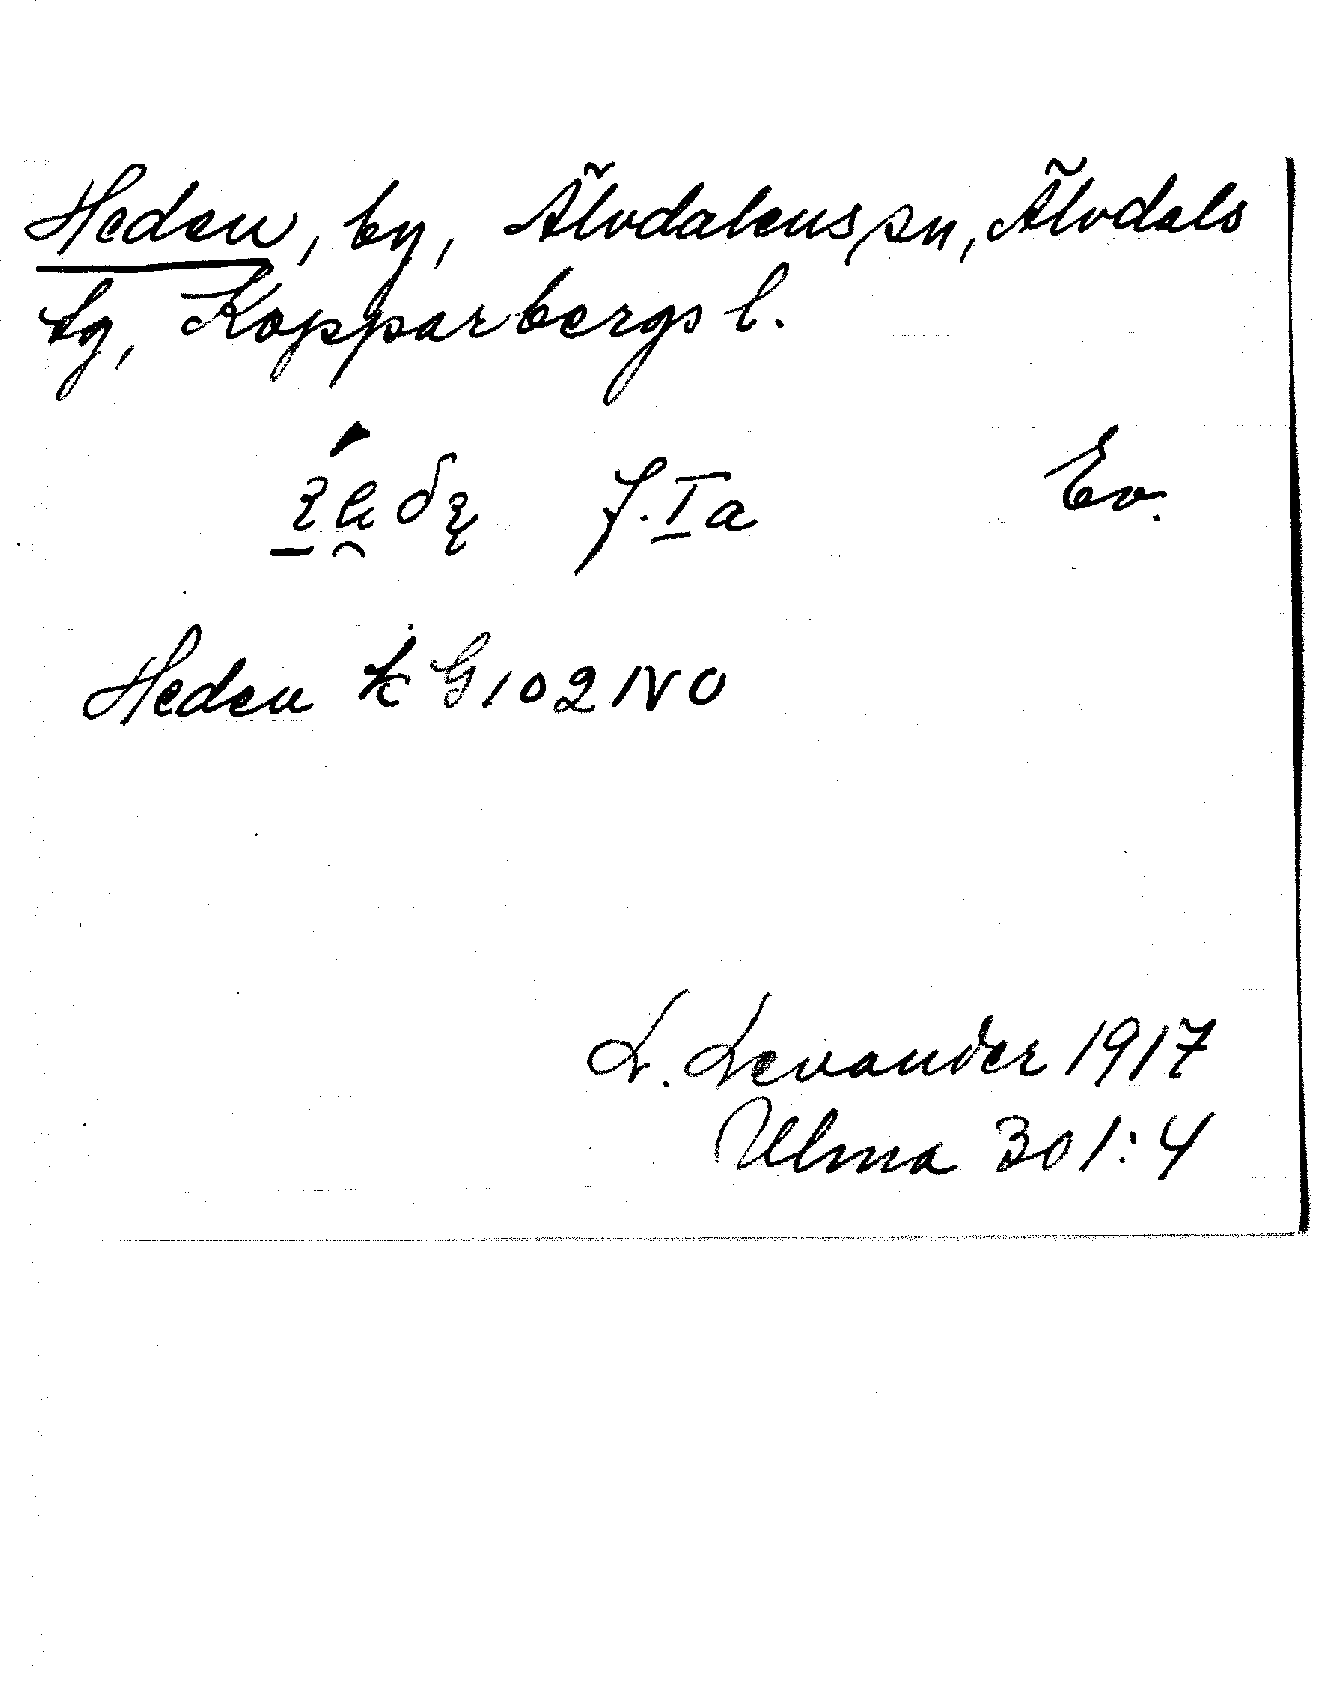 Heden, by, Älvdalens sn, Älvdals
tg, Kopparbergs l.
f. Ia Ev.
Heden k G 102 NO
L. Levander 1917
Ulma 301:4